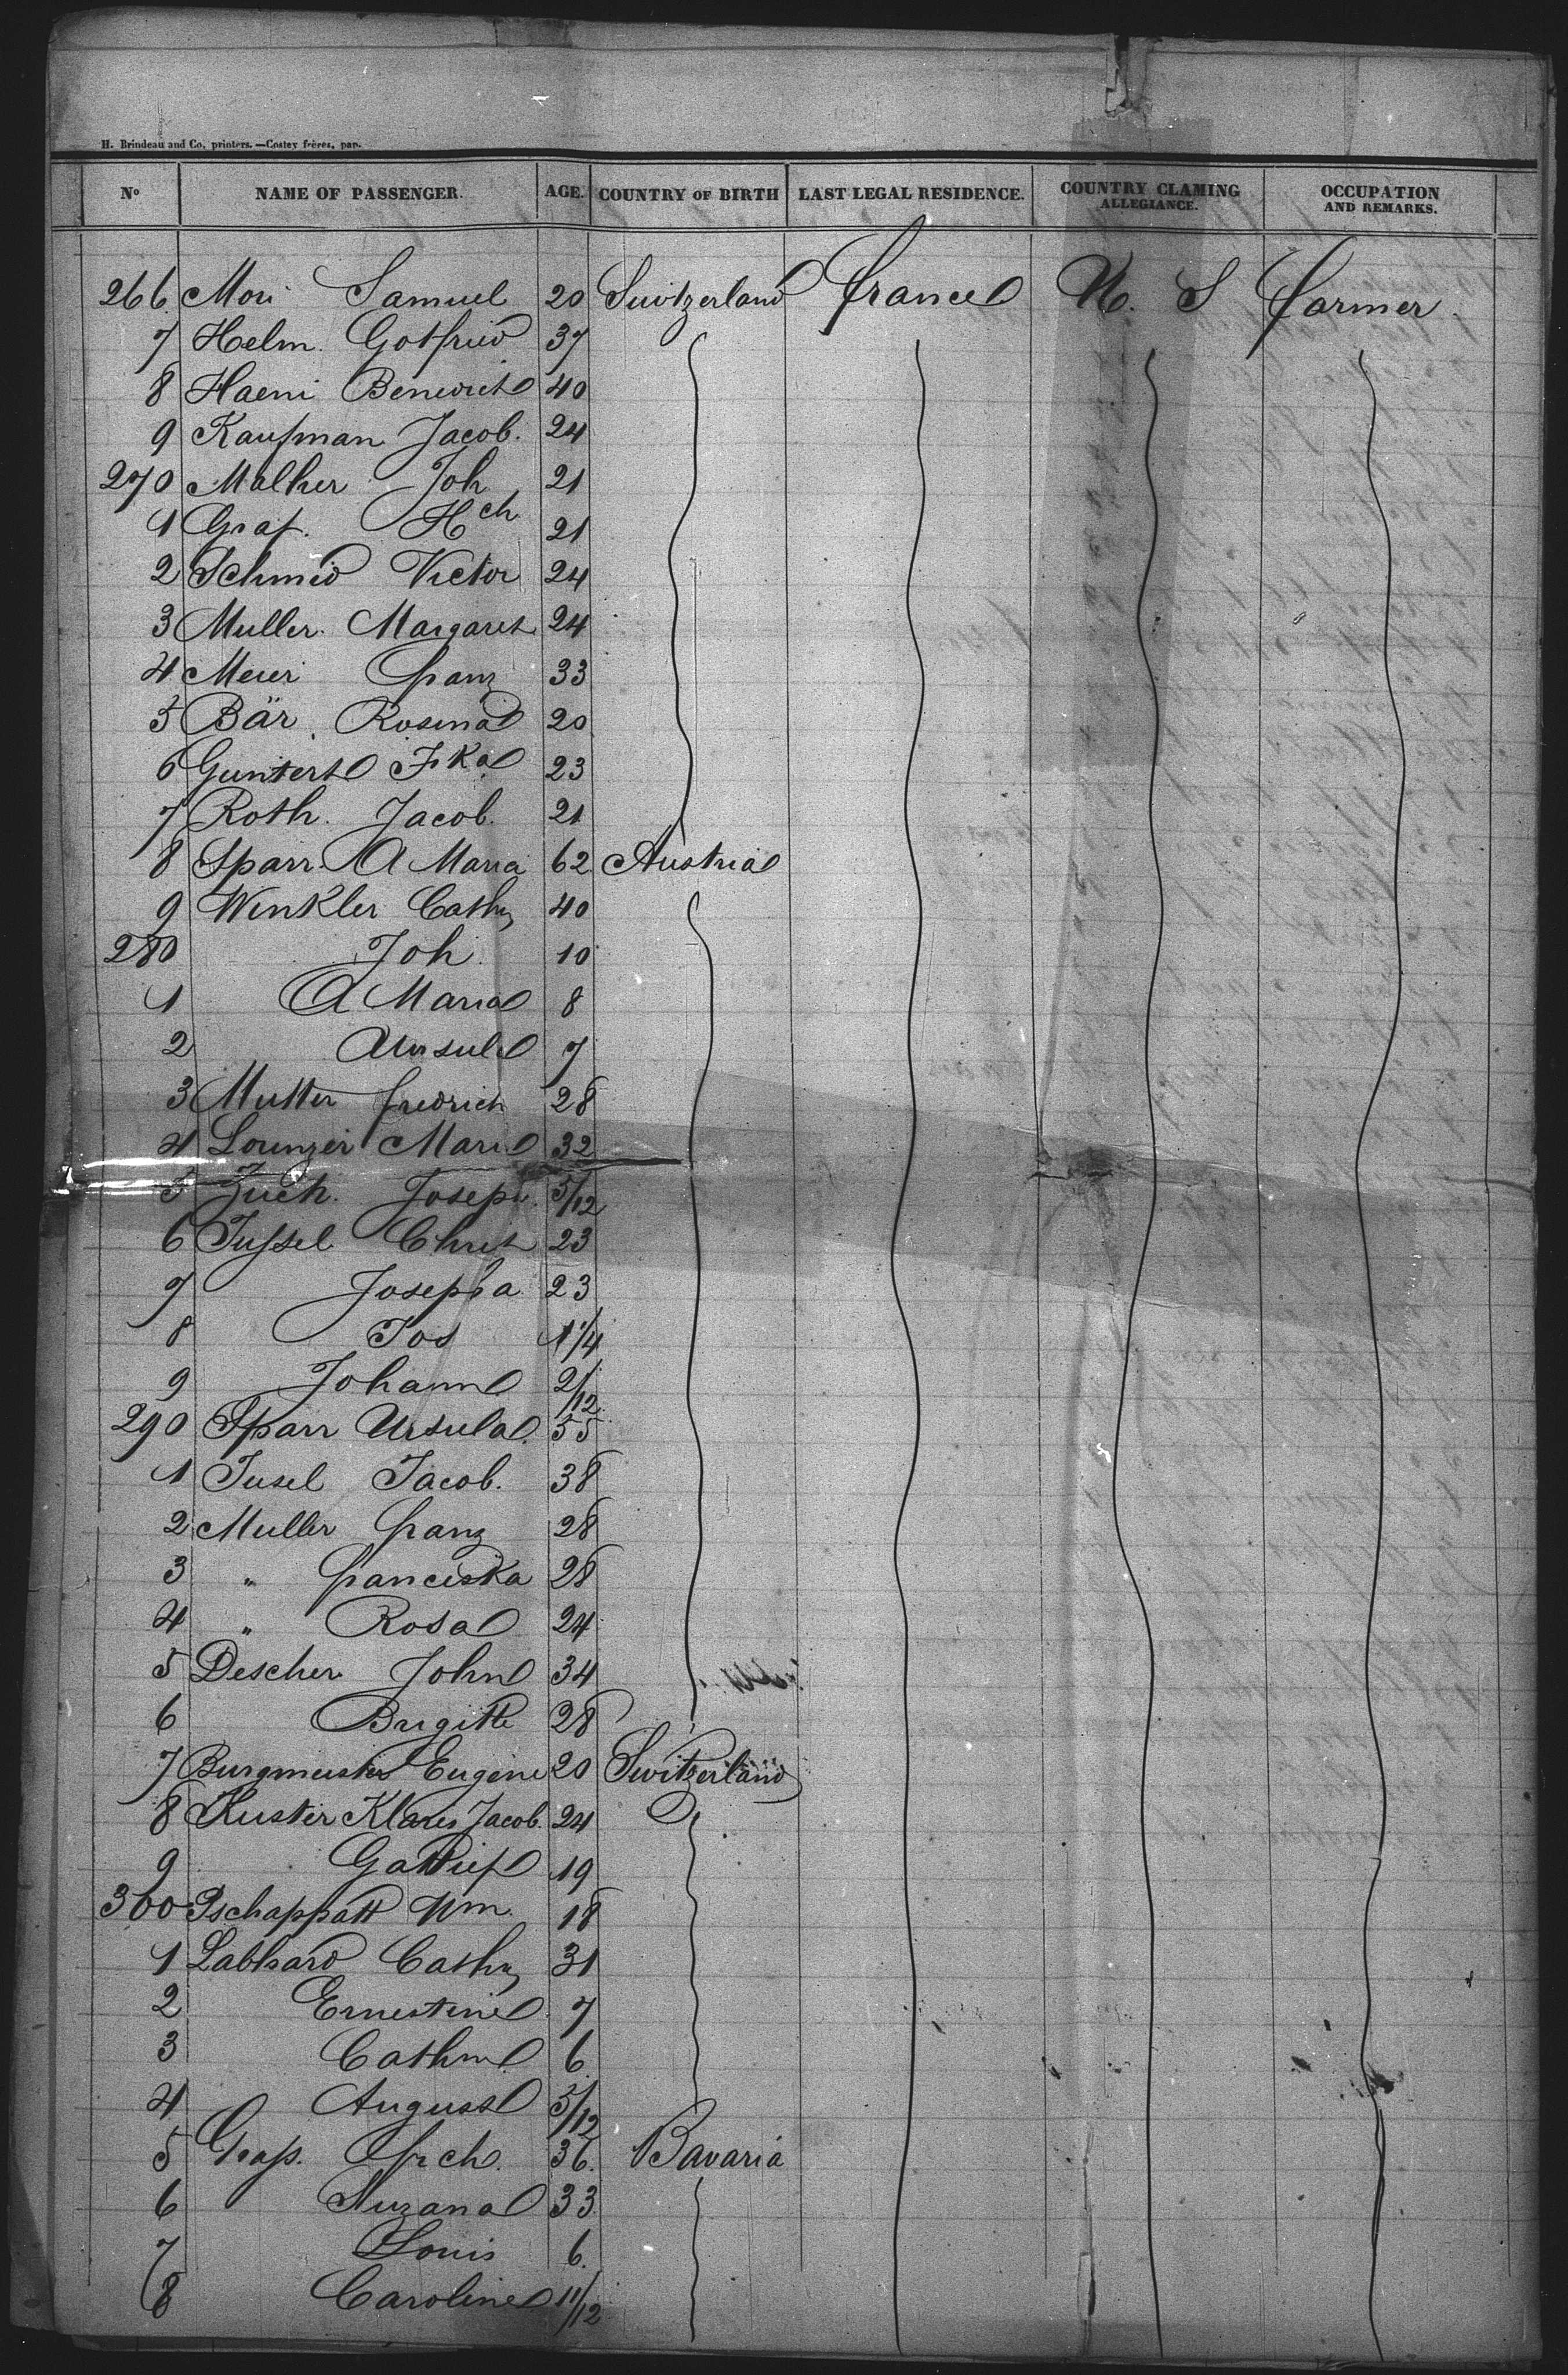 H. Brindeau and Co, printers. — Costey frères, pap.
Nº NAME OF PASSENGER. AGE. COUNTRY OF BIRTH LAST LEGAL RESIDENCE. COUNTRY CLAMING ALLEGIANCE. OCCUPATION AND REMARKS.
266 Mori Samuel 20 Switzerland France U. S farmer
7 Helm Gotfried 37
8 Haeni Benedict 40
9 Kaufman Jacob. 24
270 Malher Joh 21
1 Graf. Hch 21
2 Schmid Victor 24
3 Muller Margaret 24
4 Meier Franz 33
5 Bär Rosina 20
6 Guntert Fka 23
7 Roth. Jacob. 21
8 Sparr. A Maria 62 Austria
9 Winkler Cath 40
280 Joh 10
1 A Maria 8
2 Ursule 7
3 Mutter fredrich 28
4 Lounzer Marie 32
5 Juch. Joseph. 5/12
6 Jussel Christ 23
7 Josepha 23
8 Jos 1 1/4
9 Johann 2/12
290 Sparr Ursula. 55
1 Jusel Jacob. 38
2 Muller Franz 28
3 " Franciska 28
4 " Rosa 24
5 Descher John 34
6 Brigitte 28
7 Burgmeister Eugene 20 Switzerland
8 Kuster Klaus Jacob. 24
9 19
300 Pschappatt Wm. 18
1 Labhard Cath 31
2 Ernestine 7
3 Cathne 6
4 August 5/12
5 36. Bavaria
6 Suzana 33
7 Louis 6.
8 Caroline 11/12